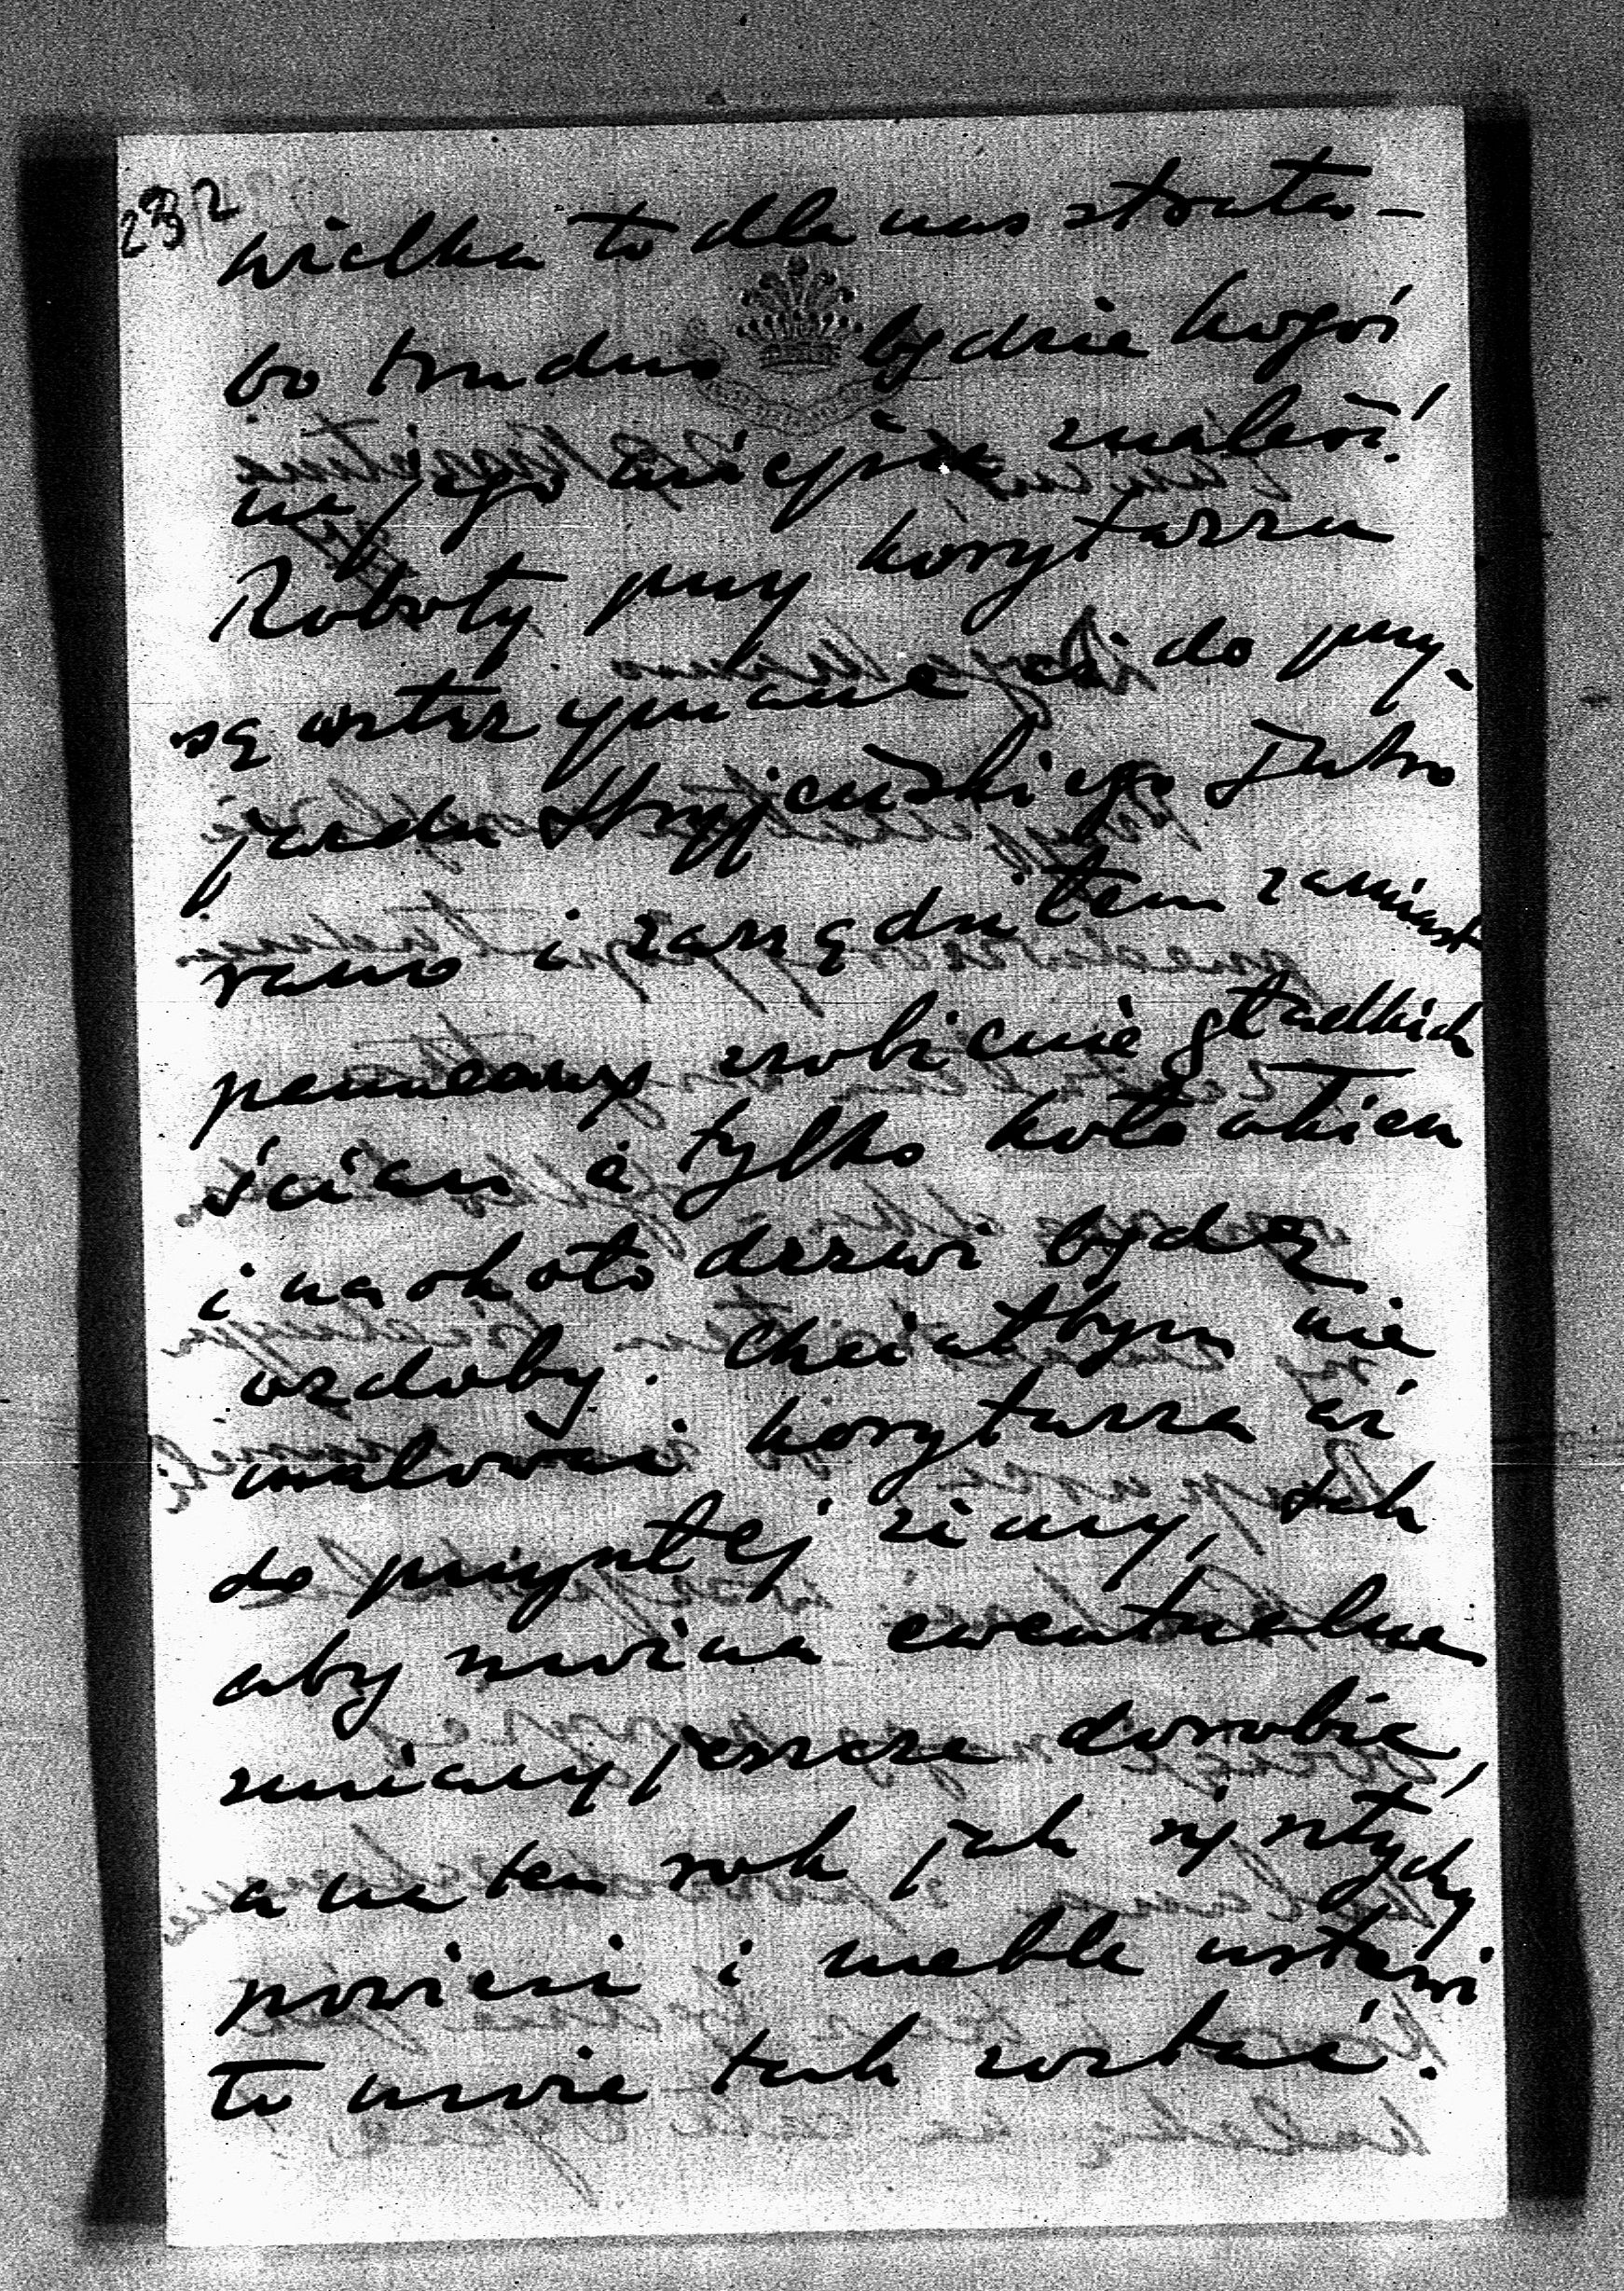 232
wielka to dla nas strata –
bo trudno będzie kogoś
na jego miejsce znaleść!
Roboty przy korytarzu
są wstrzymane aż do przy-
jazdu Stryjeńskiego Jutro
rano i zarządzitem zamiast
panneaux zrobienie gładkich
ścian a tylko koło okien
i naokoło drzwi będą
ozdoby. Chciałbym nie
malować korytarza aż
do przyszłej zimy, tak
aby można ewentualne
zmiany jeszcze dorobić,
a na ten rok jak się sztychy
powiesi i meble ustawi
to może tak zostać.